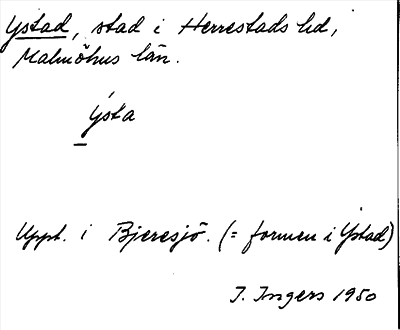 Ystad, stad i Herrestads hd,
Malmöhus län.
ýsta
Uppt. i Bjeresjö. (= formen i Ystad)
I. Ingers 1950